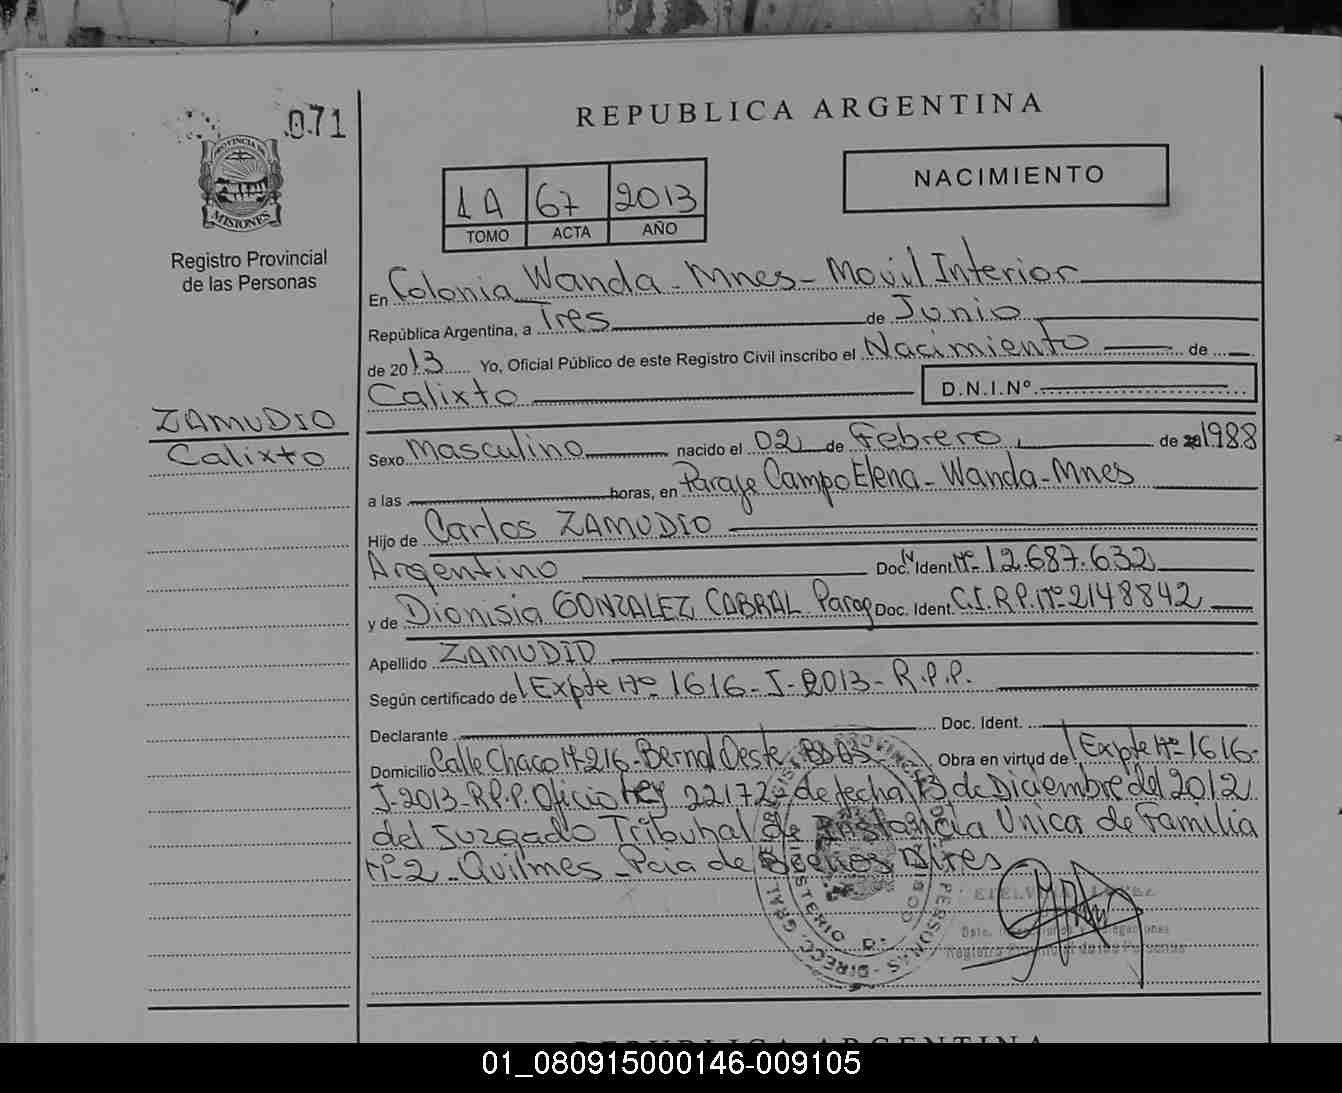 071
REPUBLICA ARGENTINA
PROVINCIA DE
MISIONES
Registro Provincial
de las Personas
1A 67 2013
TOMO ACTA AÑO
NACIMIENTO
En Colonia Wanda - Mnes - Movil Interior
República Argentina, a Tres de Junio
de 2013 Yo, Oficial Público de este Registro Civil inscribo el Nacimiento de
Calixto D.N.I.Nº
ZAMUDIO
Calixto
Sexo Masculino nacido el 02 de Febrero de 1988
a las horas, en Paraje Campo Elena - Wanda - Mnes
Hijo de Carlos ZAMUDIO
Argentino Doc. Ident Nº 12.687.632
y de Dionisia GONZALEZ CABRAL Parag Doc. Ident. C.I.R.P. Nº 2148842
Apellido ZAMUDIO
Según certificado de Expte Nº 1616-I-2013-R.P.P.
Declarante Doc. Ident.
Domicilio Calle Chaco Nº 216 - Bernal Oeste - BSAS Obra en virtud de Expte Nº 1616-
I-2013-R.P.P. Oficio Ley 22172 - de fecha 13 de Diciembre del 2012
del Juzgado Tribunal de Instancia Unica de Familia
Nº 2 - Quilmes - Pcia de Buenos Aires
Registro Provincial de las Personas
REPUBLICA ARGENTINA
01_080915000146-009105